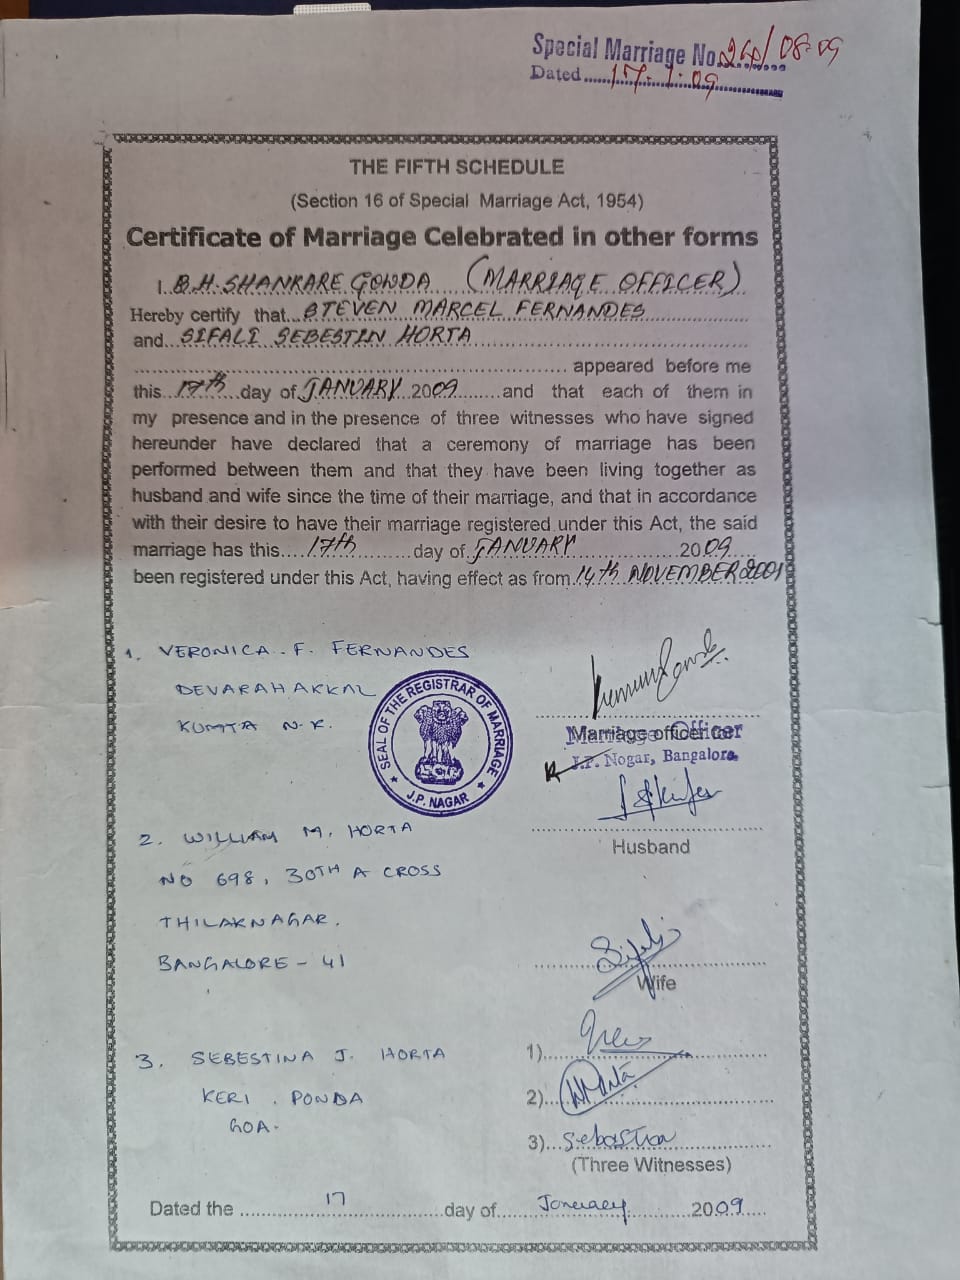 Special Marriage No. 08-09
Dated......17-1-09
THE FIFTH SCHEDULE
(Section 16 of Special Marriage Act, 1954)
Certificate of Marriage Celebrated in other forms
I. B.H. SHANKARE GOWDA (MARRIAGE OFFICER)
Hereby certify that...STEVEN MARCEL FERNANDES
and...SIFALI SEBESTIN HORTA
appeared before me
this...17th...day of JANUARY 2009.........and that each of them in
my presence and in the presence of three witnesses who have signed
hereunder have declared that a ceremony of marriage has been
performed between them and that they have been living together as
husband and wife since the time of their marriage, and that in accordance
with their desire to have their marriage registered under this Act, the said
marriage has this....17th..........day of JANUARY 2009....
been registered under this Act, having effect as from 14th NOVEMBER 2001
1. VERONICA. F. FERNANDES
DEVARAHAKKAL
KUMTA N.K.
SEAL OF THE REGISTRAR OF MARRIAGE
J.P. NAGAR
Marriage officer
Marriage Officer
J.P. Nogar, Bangalore
Husband
2. WILLIAM M. HORTA
NO 698, 30TH A CROSS
THILAKNAGAR.
BANGALORE - 41
Sifali
Wife
3. SEBESTINA J. HORTA
KERI . PONDA
GOA.
1)
2)
3)...Sebastina
(Three Witnesses)
Dated the 17 day of January 2009